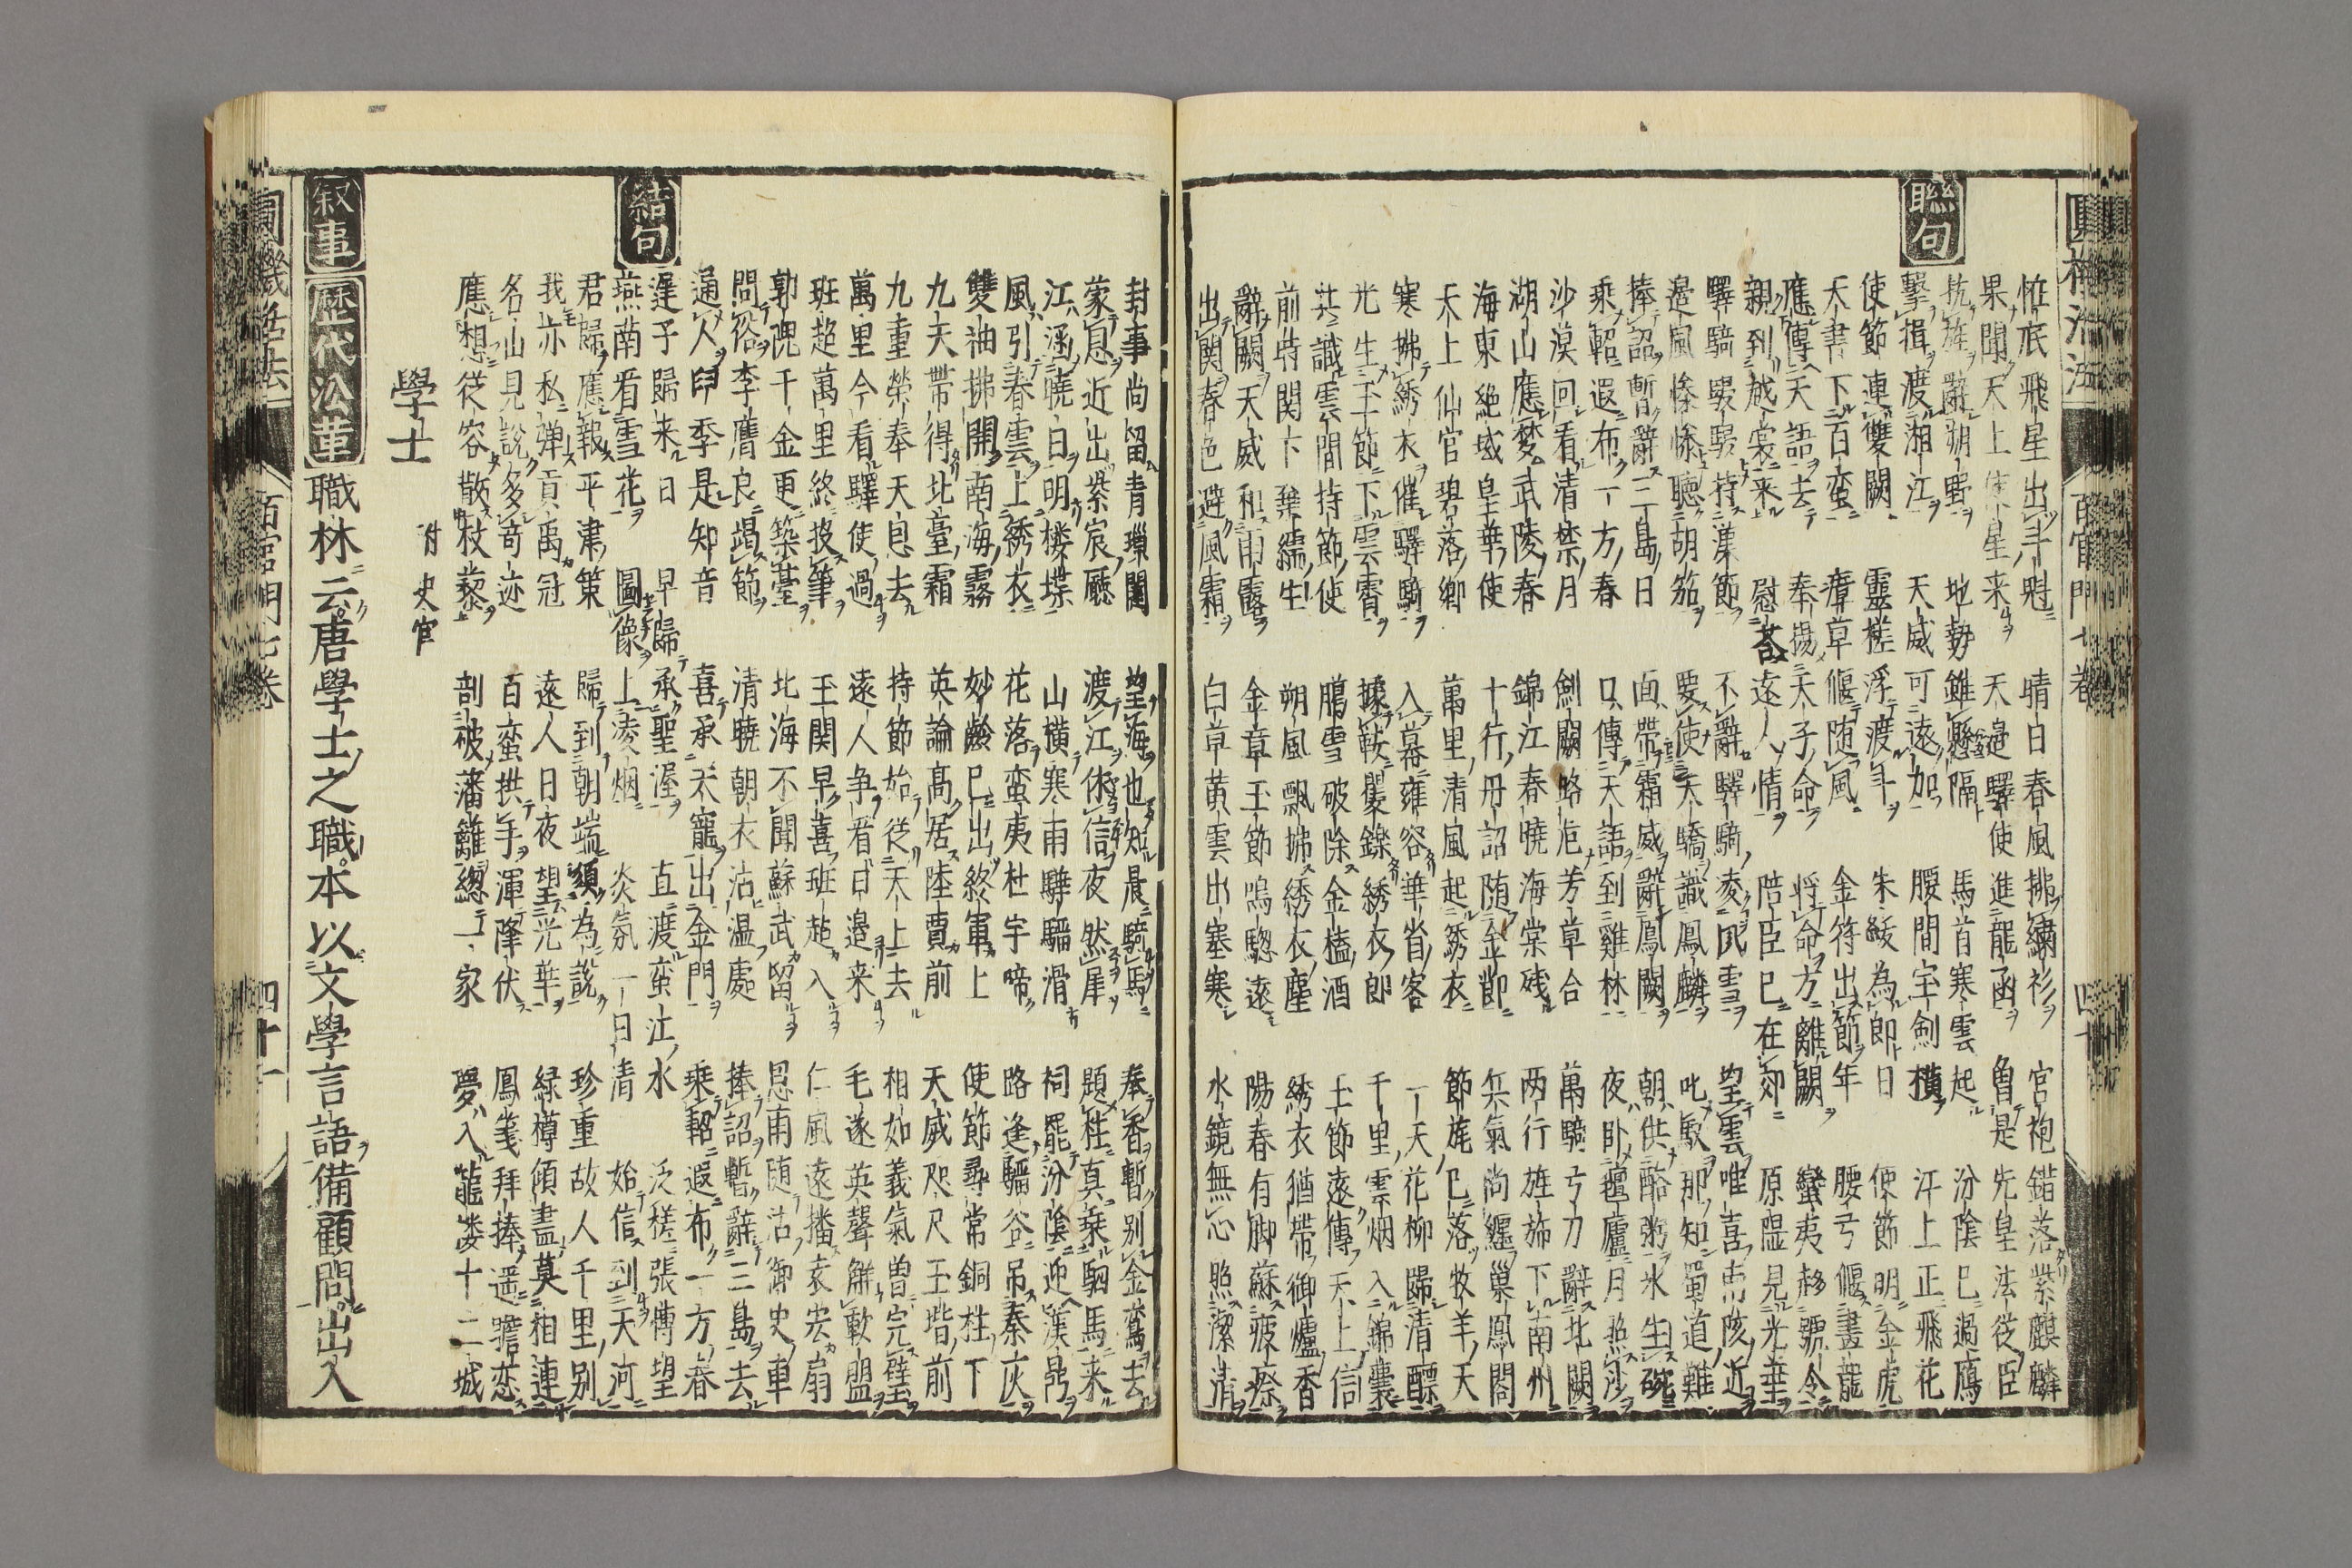 圓機活法 百官門七卷 四十
聯句
帷底飛星出斗魁 晴日春風拂繡衫 宮袍錯落紫麒麟
果聞天上使星来 天邉驛使進龍函 魯是先皇法従臣
抗旌辭朔野 地勢雖懸隔 馬首寒雲起 汾陰已過鴈
擊揖渡湘江 天威可遠加 腰間宝劍横 汗上正飛花
使節連雙闕 靈槎浮渡斗 朱綬為郎日 使節明金虎
天書下百蛮 瘴草偃随風 金符出節年 腰弓偃畫龍
應傳天語去 奉揚天子命 将命方離闕 蠻夷移號令
親到越裳来 慰荅遠人情 陪臣已在郊 原隰見光華
驛騎騤騤持漢節 不辭驛騎凌風雪 望雲唯喜
邉風惨惨聴胡笳 要使天驕識鳳麟 叱馭那知蜀道難
捧詔暫辭三島日 面帶霜威辭鳳闕 朝供酪粥氷生碗
乘軺遐布一方春 口傳天語到雞林 夜卧氊廬月照沙
沙漠回看清禁月 劍關路危芳草合 萬騎弓刀辭北闕
湖山應夢武陵春 錦江春曉海棠残 两行旌旆下南州
海東絶域皇華使 十行丹詔随金節 兵氣尚纒巢鳳閣
天上仙官碧落卿 萬里清風起綉衣 節旄已落牧羊天
寒拂綉衣催驛騎 入幕雍容華省客 一天花柳歸清醥
光生玉節下雲霄 據鞍矍鑠綉衣郎 千里雲烟入錦囊
共識雲間持節使 鵰雪破除金榼酒 玉節遠傳天上信
前時関下棄繻生 朔風飄拂綉衣塵 綉衣猶帶御爐香
辭闕天威和雨露 金章玉節鳴騘遠 陽春有脚蘇疲瘵
出関春色避風霜 白草黄雲出塞寒 水鏡無心照潔清
封事尚留青瑣闥 望海也知晨騎馬 奉香暫别金鸞去
蒙恩近出紫宸廳 渡江休信夜然犀 題柱真乗駟馬来
江涵曉日明楼堞 山横寒雨騂驅滑 祠罷汾陰迎漢鼎
風引春雲上綉衣 花落蛮夷杜宇啼 路逢驅谷吊秦灰
雙袖拂開南海霧 妙齢已出終軍上 使節尋常銅柱下
九天帶得北臺霜 英論髙居陸賈前 天威咫尺玉堦前
九重榮奉天恩去 持節始従天上去 相如義氣曽完璧
萬里今看驛使過 遠人争看日邉来 毛遂英聲觧歃盟
班超萬里終投筆 玉関早喜班超入 仁風遠播袁宏扇
郭隗千金更築臺 北海不聞蘇武留 恩雨随沾御史車
問俗李膺良竭節 清曉朝衣沾温處 捧詔暫辭三島去
通人臼季是知音 喜承天寵出金門 乗軺遐布一方春
結句
遅子歸来日 早歸承聖渥 直渡蛮江水 泛槎張慱望
燕南看雪花 圖像上凌烟 炎氛一日清 始信到天河
君歸應報平津策 歸到朝端須為説 珍重故人千里别
我亦私弾貢禹冠 遠人日夜望光華 緑樽傾盡莫相連
名山見説多奇迹 百蛮拱手渾降伏 鳳箋拜捧遥瞻恋
應想従容散杖藜 剖破藩籬總一家 夢入龍楼十二城
學士 附史官
叙事 歴代㳂革 職林云唐學士之職本以文學言語備顧問出入
圓機活法 百官門七卷 四十一